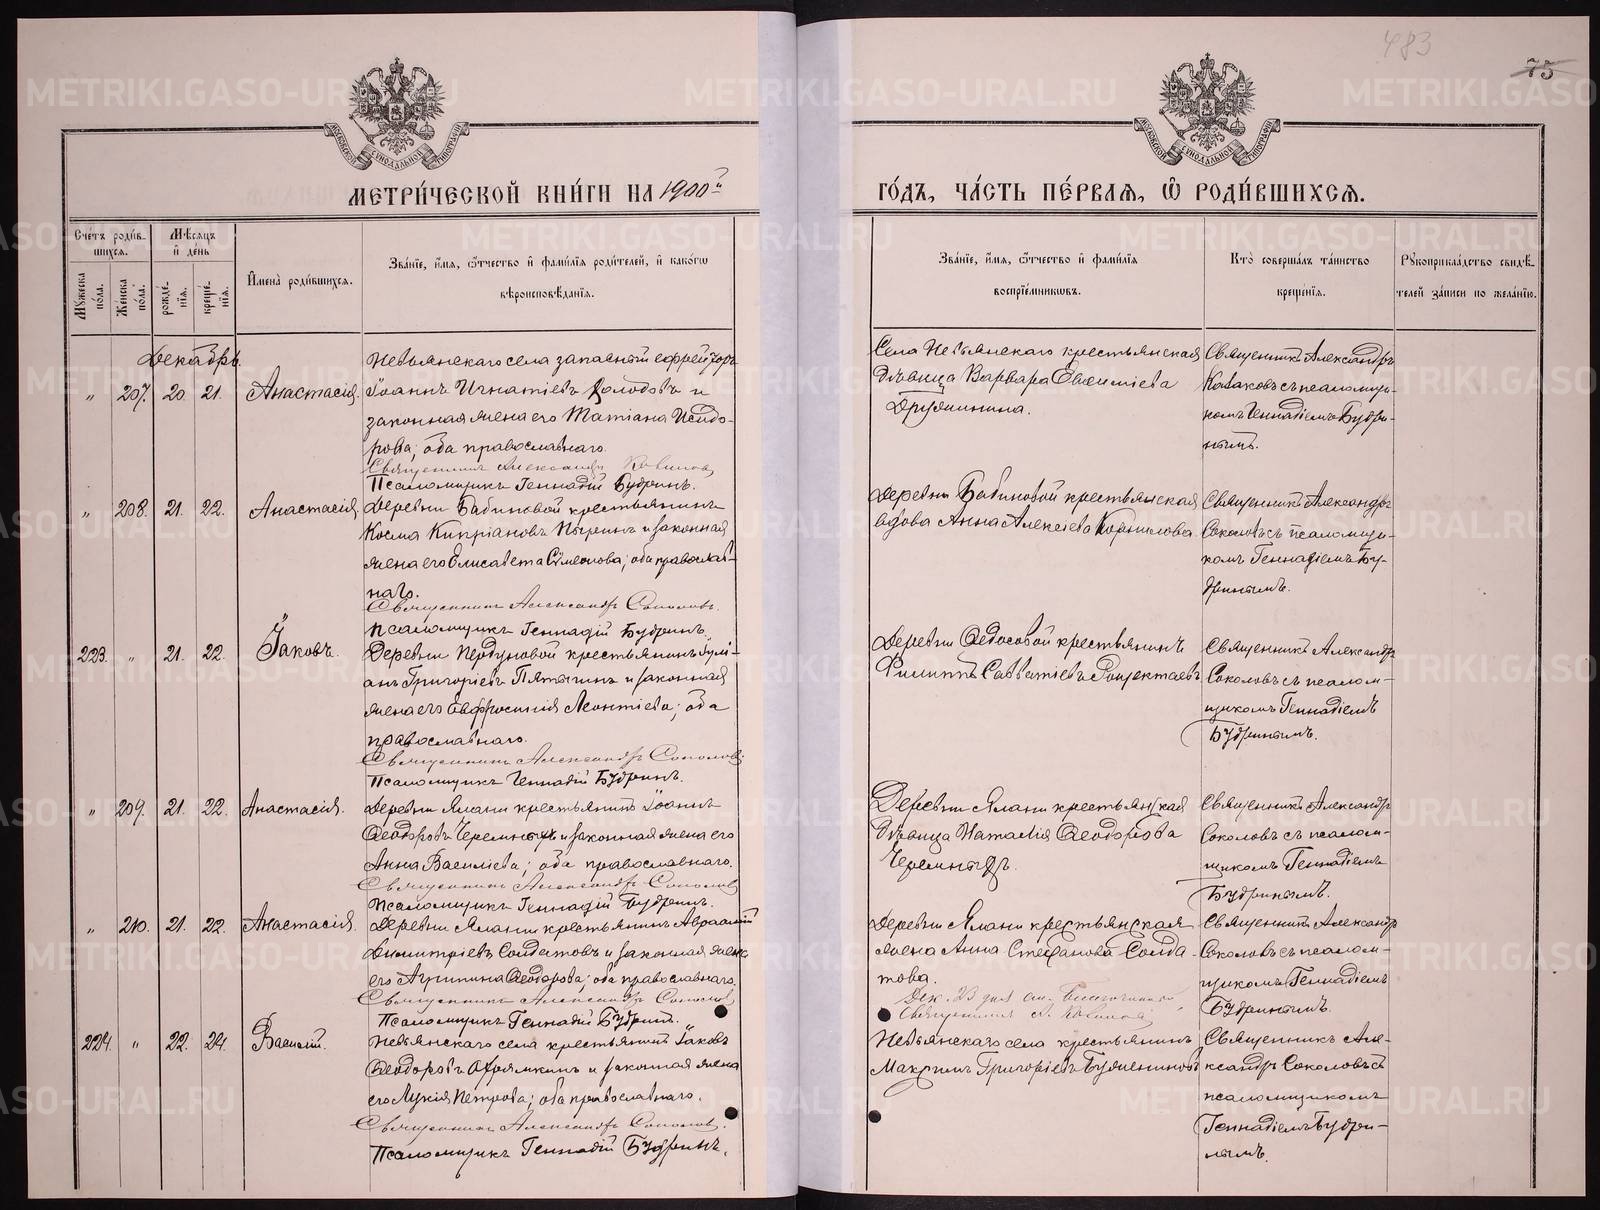 483
75
МЕТРИ́ЧЕСКОЙ КНИ́ГИ НА 1900й
ГО́ДЪ, ЧА́СТЬ ПЕ́РВАѦ, Ѿ РОДИ́ВШИХСѦ.
Сче́тъ роди́вшихсѧ.
Мꙋжеска по́ла.
Же́нска по́ла.
Мѣ́сѧцъ и҆ де́нь
рожде́нїѧ.
креще́нїѧ.
И҆мена̀ роди́вшихсѧ.
Зва́нїе, и҆́мѧ, ѻ҆́тчество и҆ фами́лїѧ роди́телей, и҆ како́гѡ
вѣроисповѣ́данїѧ.
Зва́нїе, и҆́мѧ, ѻ҆́тчество и҆ фами́лїѧ
воспрїе́мникѡвъ.
Кто̀ соверша́лъ та́инство
креще́нїѧ.
Рꙋкоприкла́дство свидѣ́-
телей за́писи по жела́нїю.
Декабрь.
„ 207. 20. 21. Анастасія.
Невьянскаго села запасный ефрейторъ
Іоаннъ Игнатіевъ Холодовъ и
законная жена его Татіана Исидо-
рова; оба православнаго.
Священникъ Александръ
Псаломщикъ Геннадій Будринъ.
Села Невьянскаго крестьянская
дѣвица Варвара
Дружинина.
Священникъ Александръ
съ псаломщи-
комъ Геннадіемъ Будри-
нымъ.
„ 208. 21. 22. Анастасія.
Деревни Бабиновой крестьянинъ
Косма Кипріановъ и законная
жена его Елисавета Симеонова; оба православ-
наго.
Священникъ Александръ Соколовъ.
Псаломщикъ Геннадій Будринъ.
Деревни Бабиновой крестьянская
вдова Анна Алексіева Корнилова.
Священникъ Александръ
Соколовъ съ псаломщи-
комъ Геннадіемъ Бу-
дринымъ.
223. „ 21. 22. Іаковъ.
Деревни Пердуновой крестьянинъ Іулі-
анъ Григоріевъ Пятыгинъ и законная
жена его Евфросинія Леонтіева; оба
православнаго.
Священникъ Александръ Соколовъ.
Псаломщикъ Геннадій Будринъ.
Деревни Ѳедосовой крестьянинъ
Филиппъ Савватіевъ
Священникъ Александръ
Соколовъ съ псалом-
щикомъ Геннадіемъ
Будринымъ.
„ 209. 21. 22. Анастасія.
Деревни Ялани крестьянинъ Іоаннъ
Ѳеодоровъ Черемныхъ и законная жена его
Анна Василіева; оба православнаго.
Священникъ Александръ Соколовъ
Псаломщикъ Геннадій Будринъ.
Деревни Ялани крестьянская
дѣвица Наталія Ѳеодорова
Черемныхъ.
Священникъ Александръ
Соколовъ съ псалом-
щикомъ Геннадіемъ
Будринымъ.
„ 210. 21. 22. Анастасія.
Деревни Ялани крестьянинъ Авраамій
Димитріевъ Солдатовъ и законная жена
его Агриппина Ѳеодорова; оба православнаго.
Священникъ Александръ Соколовъ
Псаломщикъ Геннадій Будринъ.
Деревни Ялани крестьянская
жена Анна Стефанова Солда-
това.
Дек. 23 дня
Священникъ
Священникъ Александръ
Соколовъ съ псалом-
щикомъ Геннадіемъ
Будринымъ.
224. „ 22. 24. Василій.
Невьянскаго села крестьянинъ Іаковъ
Ѳеодоровъ и законная жена
его Лукія Петрова; оба православнаго.
Священникъ Александръ Соколовъ.
Псаломщикъ Геннадій Будринъ.
Невьянскаго села крестьянинъ
Максимъ Григоріевъ
Священникъ Але-
ксандръ Соколовъ съ
псаломщикомъ
Геннадіемъ Будри-
нымъ.
METRIKI.GASO-URAL.RU